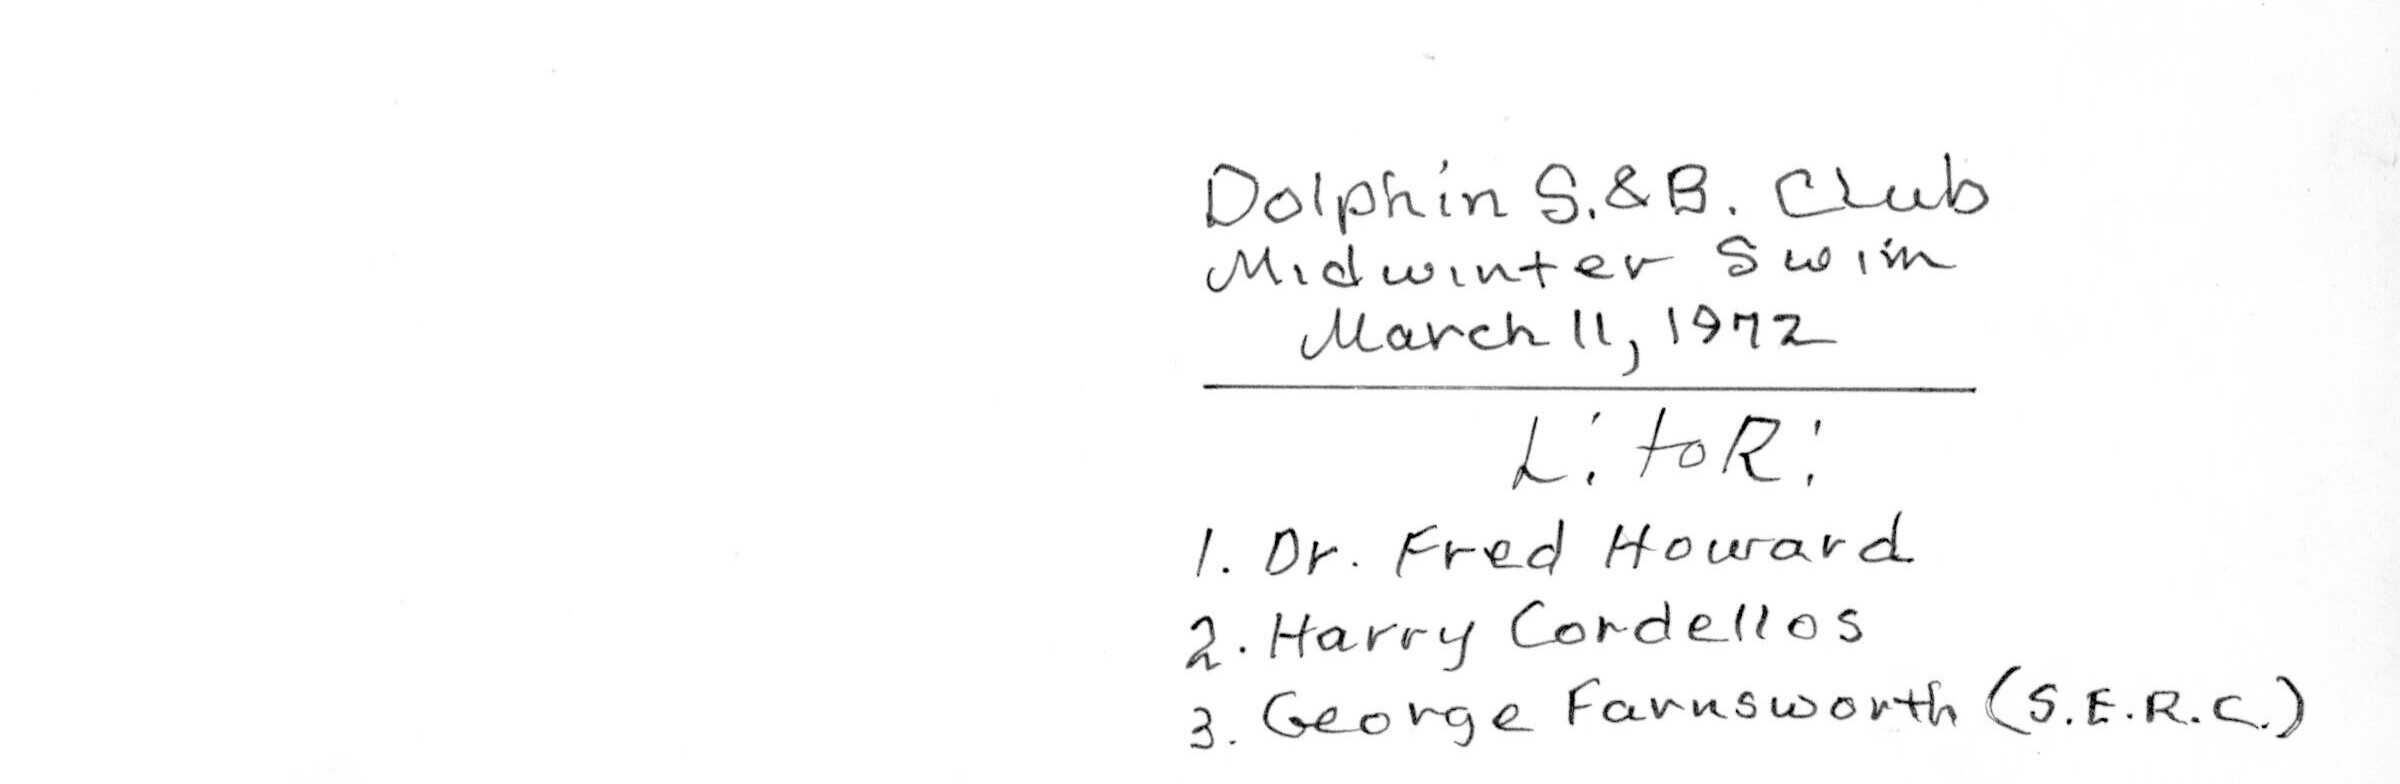 Dolphin S.&B. Club
Midwinter Swim
March 11, 1972
L. to R:
1. Dr. Fred Howard
2. Harry Cordellos
3. George Farnsworth (S.E.R.C.)